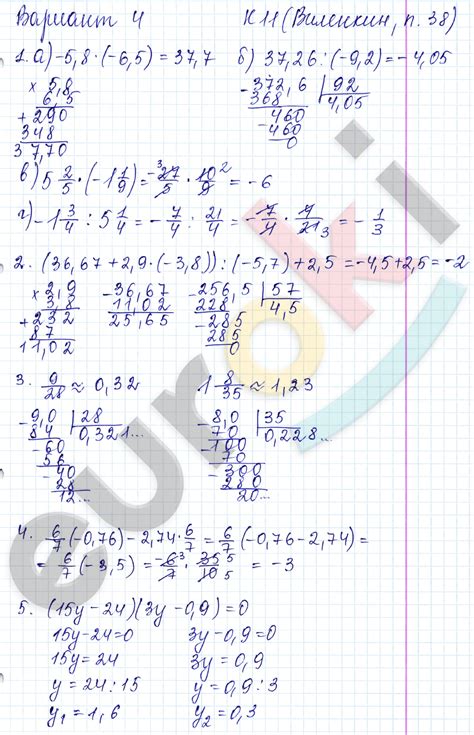 Вариант 4 К 11 (Виленкин, п. 38)
1. а) -5,8 · (-6,5) = 37,7 б) 37,26 : (-9,2) = -4,05
× 5,8
6,5
+ 290
348
37,70
- 372,6 | 92
368 4,05
- 460
- 460
0
в) 5 2/5 · (-1 1/9) = -27/5 · 10/9 = -6
3 2
г) -1 3/4 : 5 1/4 = -7/4 : 21/4 = -7/4 · 4/21 = -1/3
3
2. (36,67 + 2,9 · (-3,8)) : (-5,7) + 2,5 = -4,5 + 2,5 = -2
× 2,9
3,8
+ 232
87
11,02
- 36,67
11,02
25,65
- 256,5 | 57
228 4,5
- 285
285
0
3. 9/28 ≈ 0,32 1 8/35 ≈ 1,23
- 9,0 | 28
84 0,321...
- 60
56
- 40
28
12...
- 8,0 | 35
70 0,228...
- 100
70
- 300
280
20...
4. 6/7 (-0,76) - 2,74 · 6/7 = 6/7 (-0,76 - 2,74) =
= 6/7 (-3,5) = -6/7 · 35/10 = -3
3 5 5
5. (15y - 24)(3y - 0,9) = 0
15y - 24 = 0 3y - 0,9 = 0
15y = 24 3y = 0,9
y = 24 : 15 y = 0,9 : 3
y₁ = 1,6 y₂ = 0,3
euroki